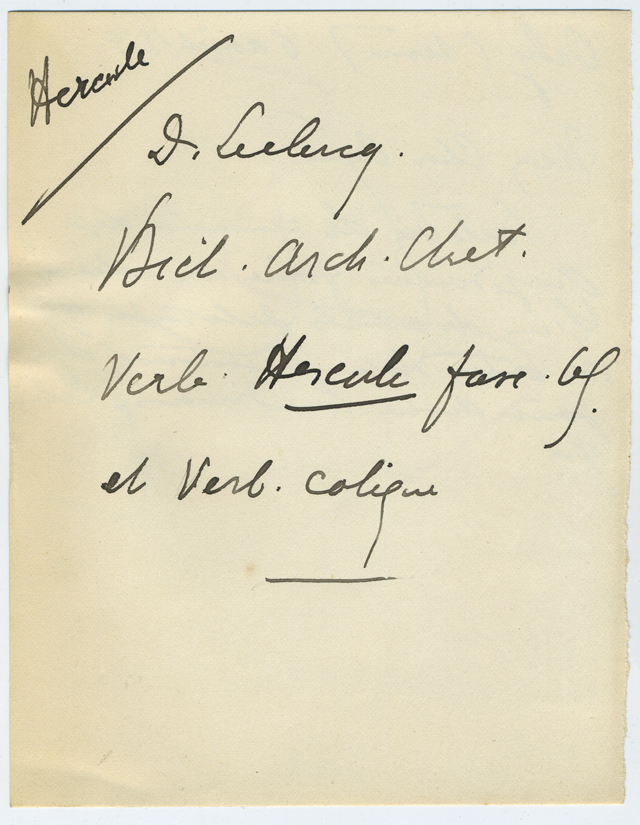 Hercule
D. Leclercq.
Dict. Arch. Chret.
Verb. Hercule fasc.
et Verb. coligue